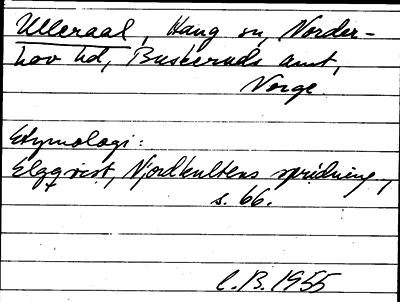 Ulleraal, Haug sn, Norder-
hov hd, Buskeruds amt,
Norge.
Etymologi:
Elgqvist, Njordkultens spridning,
s. 66.
C.B. 1955